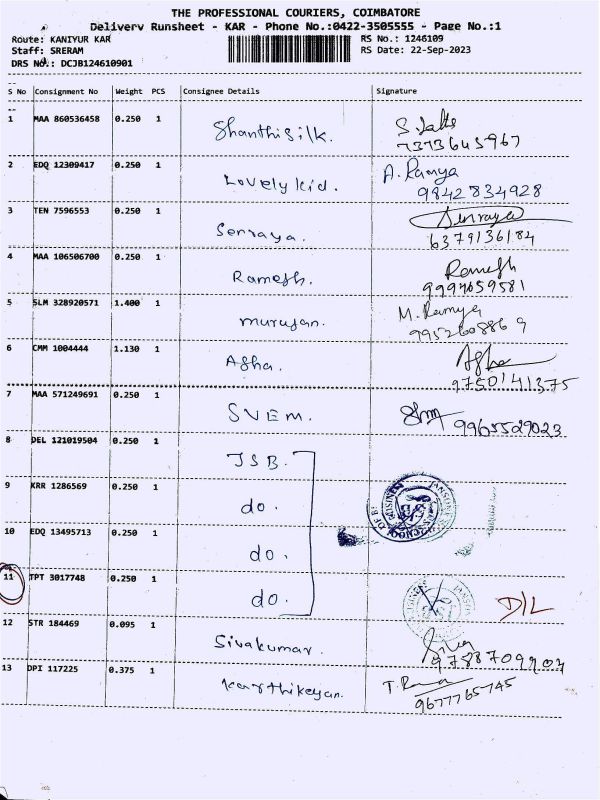 THE PROFESSIONAL COURIERS, COIMBATORE
Delivery Runsheet - KAR - Phone No.:0422-3505555 - Page No.:1
Route: KANIYUR KAR
RS No.: 1246109
Staff: SRERAM
RS Date: 22-Sep-2023
DRS No.: DCJB124610901
S No Consignment No Weight PCS Consignee Details Signature
1 MAA 860536458 0.250 1 Shanthi Silk.
7373645967
2 EDQ 12309417 0.250 1 Lovely kid. A. Ramya
9842834928
3 TEN 7596553 0.250 1 Senraya. Senraya
6379136184
4 MAA 106506700 0.250 1 Ramesh. Ramesh
9997659581
5 SLM 328920571 1.400 1 murugan. M. Ramya
9952608869
6 CMM 1004444 1.130 1 Asha. Asha
9750141375
7 MAA 571249691 0.250 1 SVEM.
9965529023
8 DEL 121019504 0.250 1 JSB.
9 KRR 1286569 0.250 1 do.
10 EDQ 13495713 0.250 1 do.
11 TPT 3017748 0.250 1 do. D/L
12 STR 184469 0.095 1 Sivakumar.
13 DPI 117225 0.375 1 Karthikeyan.
9677765745